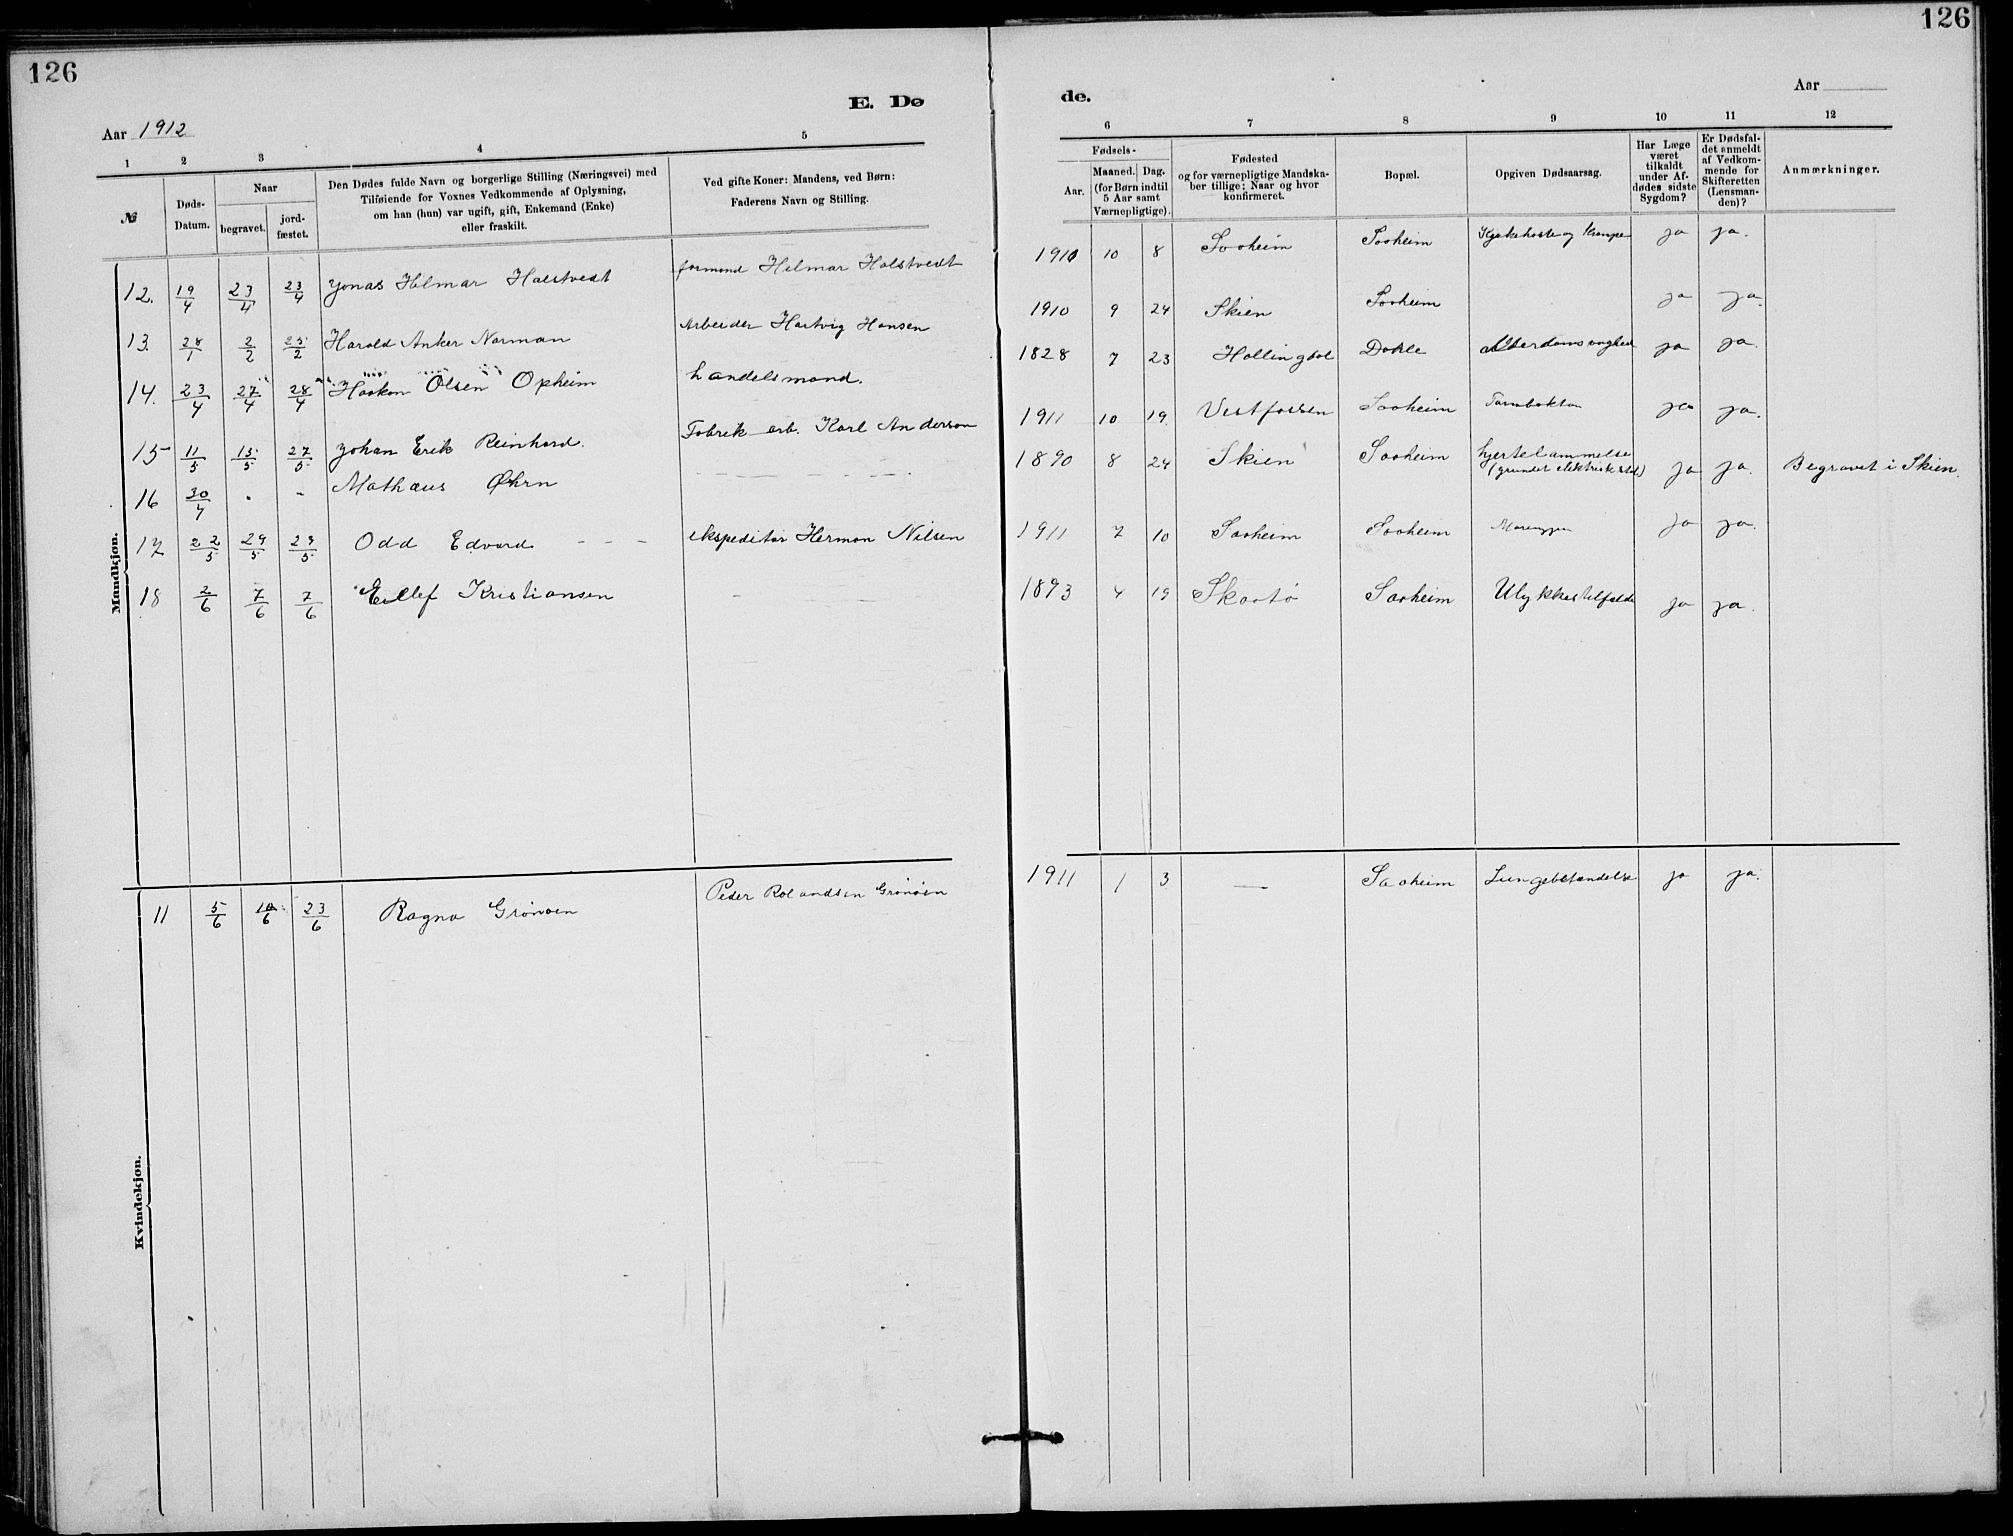 126
126
E. Dø
de.
Aar 1912
Aar
1 2 3 4 5
6 7 8 9 10 11 12
№
Døds-
Datum.
Naar
begravet.
jord-
fæstet.
Den Dødes fulde Navn og borgerlige Stilling (Næringsvei) med
Tilføiende for Voxnes Vedkommende af Oplysning,
om han (hun) var ugift, gift, Enkemand (Enke)
eller fraskilt.
Ved gifte Koner: Mandens, ved Børn:
Faderens Navn og Stilling.
Fødsels-
Aar.
Maaned. Dag.
(for Børn indtil
5 Aar samt
Værnepligtige).
Fødested
og for værnepligtige Mandska-
ber tillige: Naar og hvor
konfirmeret.
Bopæl.
Opgiven Dødsaarsag.
Har Læge
været
tilkaldt
under Af-
dødes sidste
Sygdom?
Er Dødsfal-
det anmeldt
af Vedkom-
mende for
Skifteretten
(Lensman-
den)?
Anmærkninger.
Mandkjøn.
12. 19/4 23/4 23/4 Jonas Hilmar Halstvedt formand Hilmar Halstvedt 1910 10 8 Saaheim Saaheim Kikhoste og Krampe ja ja.
13. 28/1 2/2 25/2 Harald Anker Norman Arbeider Hartvig Hansen 1910 9 24 Skien Saaheim ja ja.
14. 23/4 27/4 28/4 Haakon Olsen Opheim handelsmand. 1828 7 23 Hallingdal Dahle Alderdomssvaghed ja ja.
15 11/5 15/5 27/5 Johan Erik Reinhard. Fabrik-arb. Karl Anderson 1911 10 19 Vestfossen Saaheim ja ja.
16 30/4 " " Mathæus Øhrn — — — — 1890 8 24 Skien Saaheim hjertelammelse
(grundet elektrisk stød) ja ja. Begravet i Skien.
17 22/5 29/5 29/5 Odd Edvard - - - ekspeditør Herman Nilsen 1911 7 10 Saaheim Saaheim ja ja.
18 2/6 7/6 7/6 Ellef Kristiansen — — — 1893 4 19 Skaatø Saaheim Ulykkestilfælde ja ja.
Kvindekjøn.
11 5/6 10/6 23/6 Ragna Grønoen Peder Rolandsen Grønoen 1911 1 3 — Saaheim Lungebetændelse ja ja.